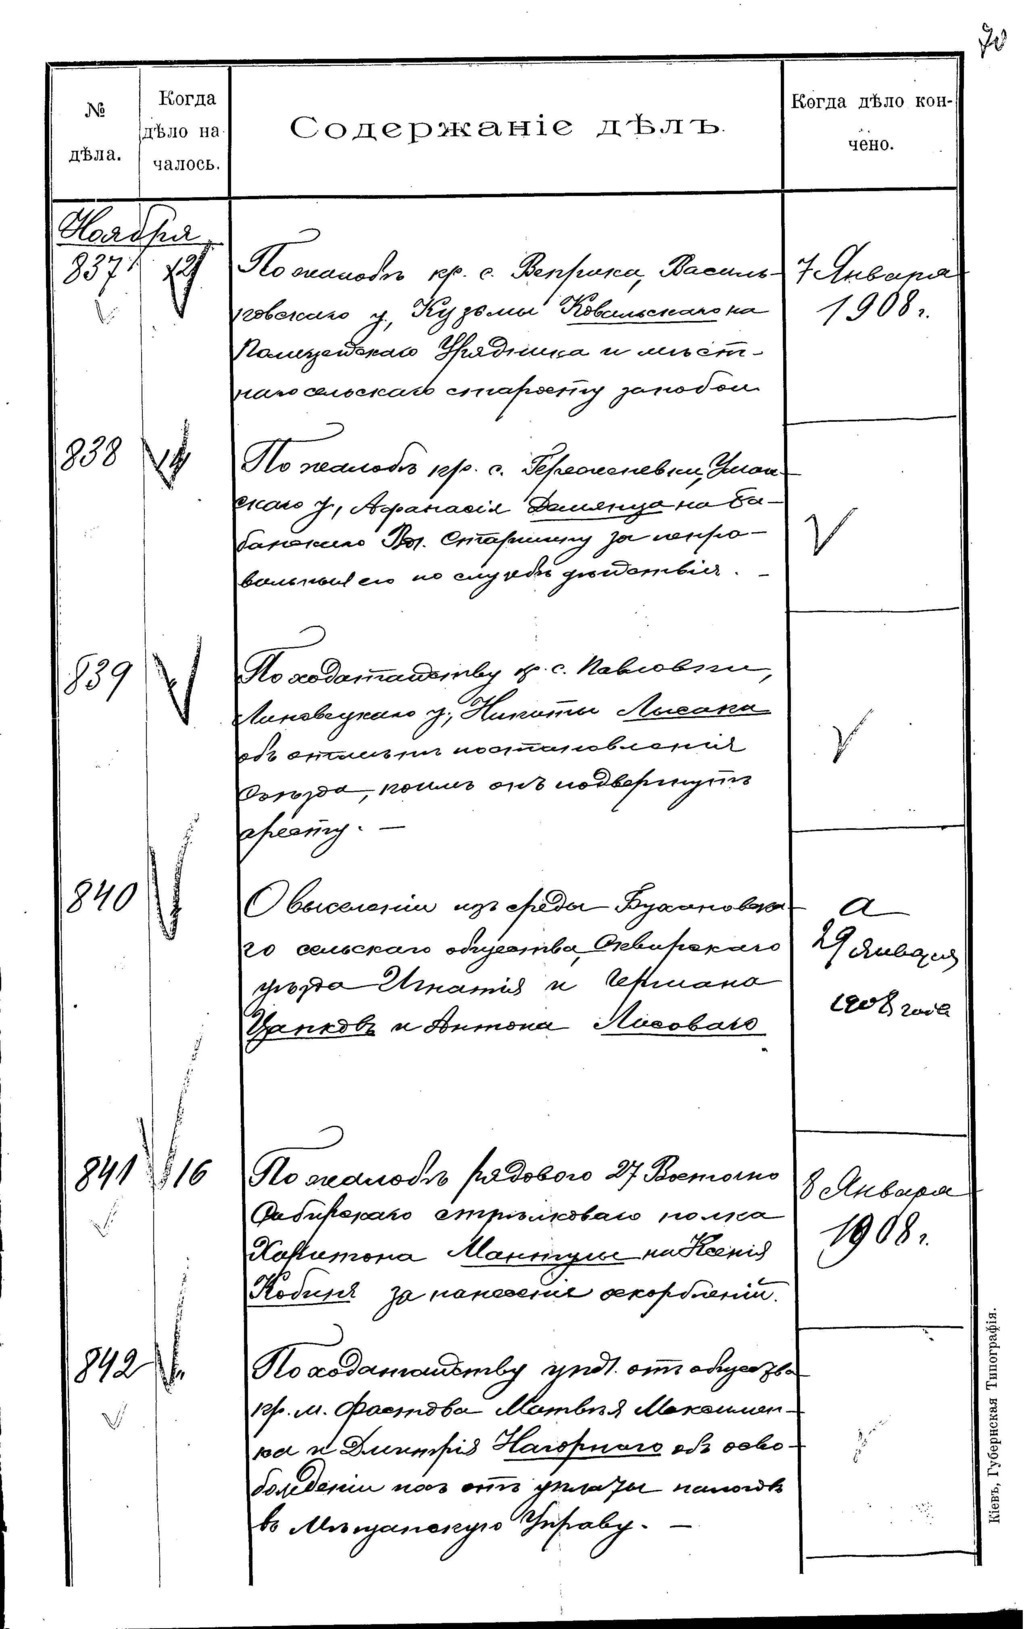 70
№ дѣла.
Когда дѣло началось.
Содержаніе дѣлъ.
Когда дѣло кончено.
Ноября
837 12 По жалобѣ кр. с. Веприка, Василь-
ковскаго у., Кузьмы Ковальскаго на
Полицейскаго Урядника и мѣст-
наго сельскаго старосту за побои
7 Января
1908 г.
838 14 По жалобѣ кр. с. Гереженевки, Уман-
скаго у., Афанасія Демянца на Ба-
банскаго Вол. Старшину за непра-
вильныя его по службѣ дѣйствія. –
839 По ходатайству кр. с. Павловки,
Липовецкаго у., Никиты Лысака
объ отмѣнѣ постановленія
Съѣзда, коимъ онъ подвергнутъ
аресту. –
840 О выселеніи изъ среды
го сельскаго общества, Сквирскаго
уѣзда Игнатія и Германа
Цапковъ и Антона Лисоваго
29 Января
1908 года
841 16 По жалобѣ рядового 27 Восточно
Сибирскаго стрѣлковаго полка
Харитона Мантулы на Ксенію
за нанесеніе оскорбленій.
8 Января
1908 г.
842 По ходатайству упол. отъ общества
кр. м. Фастова Матвѣя Максимен-
ка и Дмитрія Нагорнаго объ осво-
божденіи ихъ отъ уплаты налоговъ
въ Мѣщанскую Управу. –
Кіевъ, Губернская Типографія.